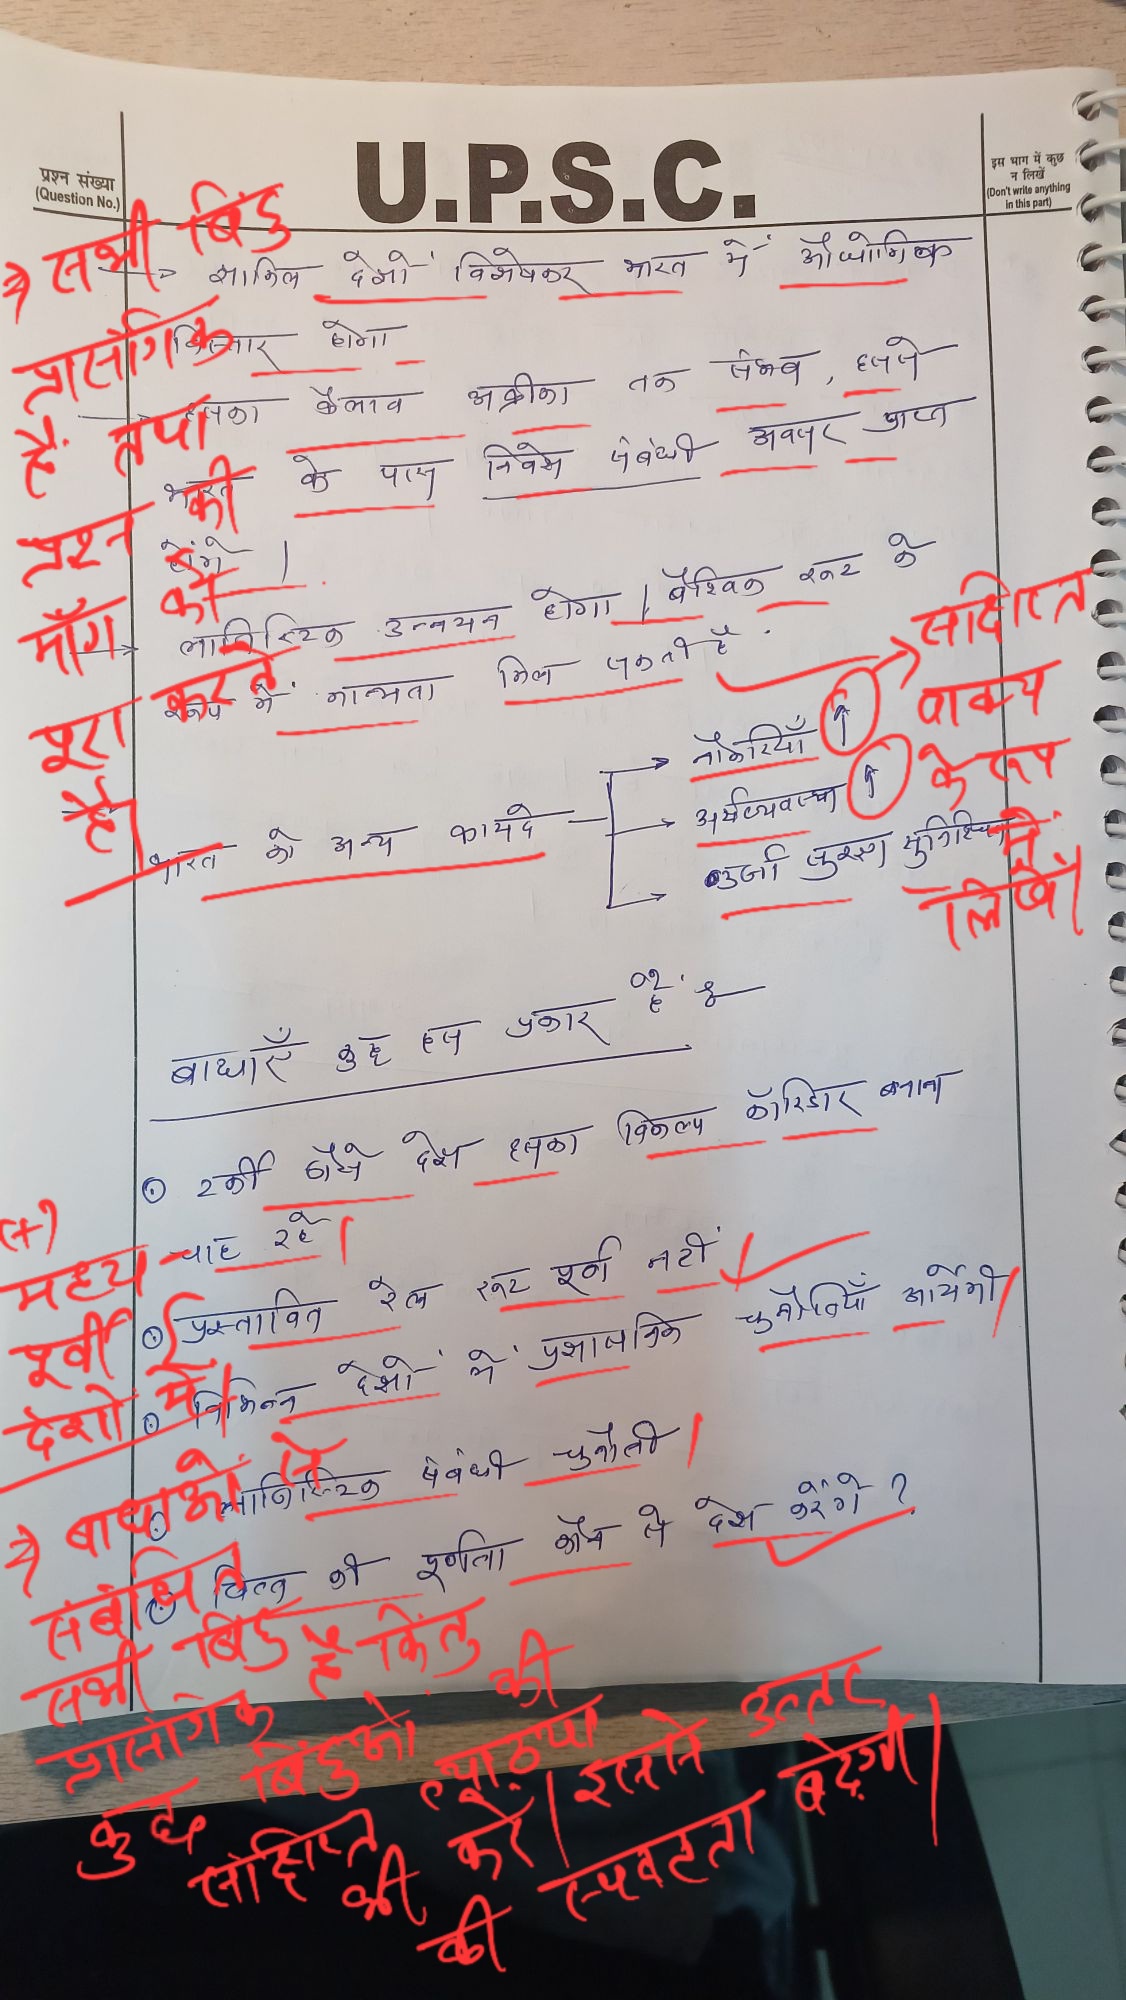 U.P.S.C.
प्रश्न संख्या
(Question No.)
इस भाग में कुछ
न लिखें
(Don't write anything
in this part)
→ शामिल देशों विशेषकर भारत में औद्योगिक
विस्तार होगा
→ इसका फैलाव अफ्रीका तक संभव, इससे
भारत के पास निवेश संबंधी अवसर प्राप्त
होंगे |
→ लाजिस्टिक उन्नयन होगा | वैश्विक रूट के
रूप में मान्यता मिल सकती है.
भारत को अन्य फायदे
→ नौकरियाँ ↑
→ अर्थव्यवस्था ↑
→ उर्जा सुरक्षा सुनिश्चित
बाधाएँ कुछ इस प्रकार हैं
⊙ टर्की जैसे देश इसका विकल्प कॉरिडोर बनाना
चाह रहे |
⊙ प्रस्तावित रेल रूट पूर्ण नहीं |
⊙ विभिन्न देशों में प्रशासनिक चुनौतियाँ आयेंगी |
⊙ लाजिस्टिक संबंधी चुनौती |
⊙ वित्त की पूर्णता कौन से देश करेंगे ?
→ सभी बिंदु
प्रासंगिक
हैं तथा
प्रश्न की
माँग को
पूरा करते
हैं|
→ संक्षिप्त
वाक्य
के रूप
में
लिखें|
(+)
मध्य
पूर्वी
देशों में|
→ बाधाओं से
संबंधित
सभी बिंदु
प्रासंगिक हैं किंतु
कुछ बिंदुओं की
संक्षिप्त व्याख्या
भी करें| इससे उत्तर
की स्पष्टता बढ़ेगी|